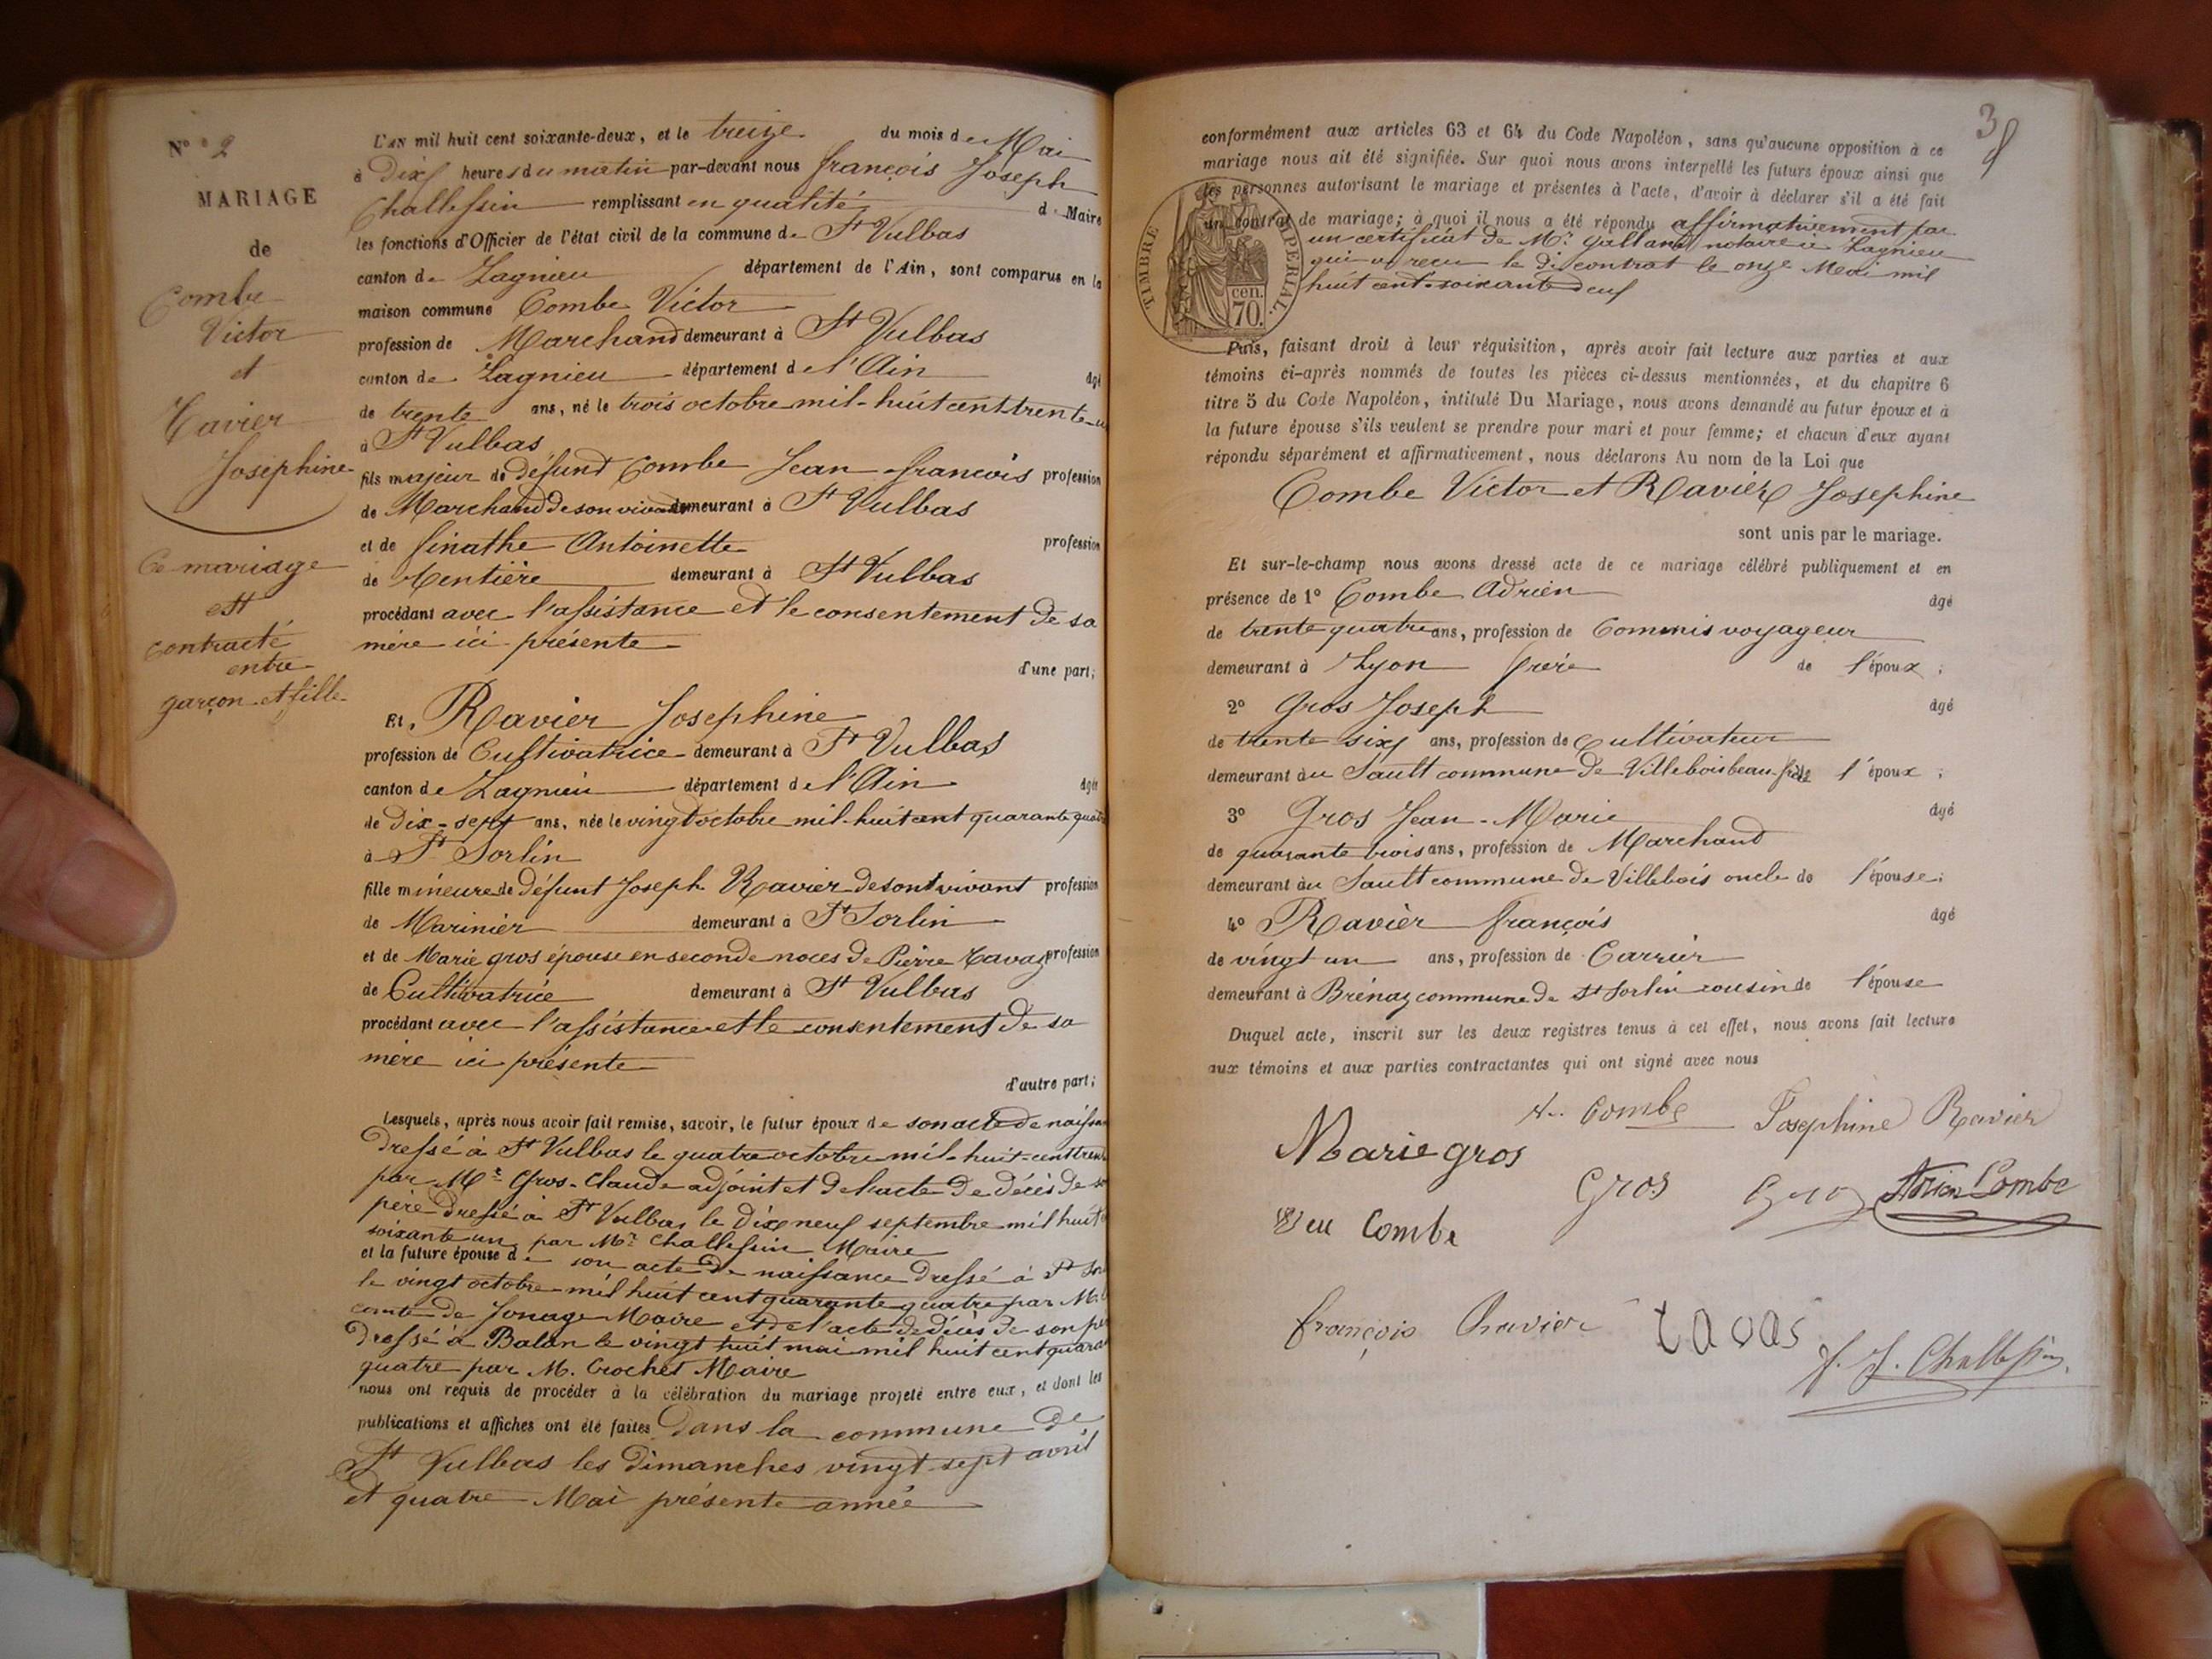 N° 2
MARIAGE
de
Combe
Victor
et
Ravier
Joséphine
Ce mariage
est
contracté
entre
garçon et fille
L'AN mil huit cent soixante-deux, et le treize du mois de Mai
à Dix heures du matin par-devant nous françois Joseph
Challessin remplissant en qualité d. Maire
les fonctions d'Officier de l'état civil de la commune d. St Vulbas
canton de Lagnieu département de l'Ain, sont comparus en la
maison commune Combe Victor
profession de Marchand demeurant à St Vulbas
canton de Lagnieu département de l'Ain âgé
de trente ans, né le trois octobre mil-huit cent trente-u
à St Vulbas
fils majeur de défund Combe Jean-françois profession
de Marchand de son vivant demeurant à St Vulbas
et de finathe Antoinette profession
de Rentière demeurant à St Vulbas
procédant avec l'assistance et le consentement de sa
mère ici présente
d'une part;
Et, Ravier Josephine
profession de Cultivatrice demeurant à St Vulbas
canton de Lagnieu département de l'Ain âgée
de Dix-sept ans, née le vingt octobre mil-huit cent quarante quatre
à St Sorlin
fille mineure de défunt Joseph Ravier de sont vivant profession
de Marinier demeurant à St Sorlin
et de Marie gros épouse en seconde noces de Pierre Tavaz profession
de Cultivatrice demeurant à St Vulbas
procédant avec l'assistance et le consentement de sa
mère ici présente
d'autre part;
Lesquels, après nous avoir fait remise, savoir, le futur époux de son acte de naissan
Dressé à St Vulbas le quatre octobre mil-huit-cent tren
par Mr Gros-Claude adjoint et de l'acte de décès de
père dressé à St Vulbas le dix neuf septembre mil huit
soixante un par Mr Challessin Maire
et la future épouse de son acte de naissance dressé à St Sor
le vingt octobre mil huit cent quarante quatre par Mr
comte de Jonage Maire et de l'acte de décès de son pè
Dressé à Balan le vingt huit mai mil huit cent quara
quatre par M. Crochet Maire
nous ont requis de procéder à la célébration du mariage projeté entre eux, et dont les
publications et affiches ont été faites Dans la commune de
St Vulbas les Dimanches vingt-sept avril
et quatre Mai présente année
3
conformément aux articles 63 et 64 du Code Napoléon, sans qu'aucune opposition à ce
mariage nous ait été signifiée. Sur quoi nous avons interpellé les futurs époux ainsi que
les personnes autorisant le mariage et présentes à l'acte, d'avoir à déclarer s'il a été fait
un contrat de mariage; à quoi il nous a été répondu affirmativement par
un certificat de Mr Galland notaire à Lagnieu
qui a reçu le di contrat le onze Mai mil
huit cent soixante deux
TIMBRE IMPÉRIAL.
cen.
70.
Puis, faisant droit à leur réquisition, après avoir fait lecture aux parties et aux
témoins ci-après nommés de toutes les pièces ci-dessus mentionnées, et du chapitre 6
titre 5 du Code Napoléon, intitulé Du Mariage, nous avons demandé au futur époux et à
la future épouse s'ils veulent se prendre pour mari et pour femme; et chacun d'eux ayant
répondu séparément et affirmativement, nous déclarons Au nom de la Loi que
Combe Victor et Ravier Josephine
sont unis par le mariage.
Et sur-le-champ nous avons dressé acte de ce mariage célébré publiquement et en
présence de 1° Combe Adrien âgé
de trente quatre ans, profession de Commis voyageur
demeurant à Lyon frère de l'époux;
2° Gros Joseph âgé
de trente six ans, profession de Cultivateur
demeurant au Sault commune de Villebois beau-frère l'époux;
3° Gros Jean-Marie âgé
de quarante trois ans, profession de Marchand
demeurant au Sault commune de Villebois oncle de l'épouse;
4° Ravier françois âgé
de vingt un ans, profession de Carrier
demeurant à Brénaz commune de St Sorlin cousin de l'épouse
Duquel acte, inscrit sur les deux registres tenus à cet effet, nous avons fait lecture
aux témoins et aux parties contractantes qui ont signé avec nous
Combe Josephine Ravier
Marie gros
Gros Gros Adrien Combe
Veu Combe
françois Ravier tavas
f. J. Challessin